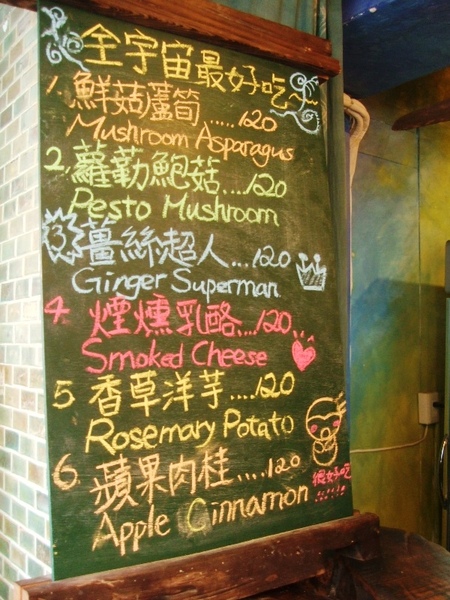 全宇宙最好吃~
1. 鮮菇蘆筍......120
Mushroom Asparagus
2. 蘿勒鮑菇....120
Pesto Mushroom
3. 薑絲超人...120
Ginger Superman
4. 煙燻乳酪....120
Smoked Cheese
5 香草洋芋....120
Rosemary Potato
6. 蘋果肉桂.....120
Apple Cinnamon
很好吃
!!!!!!